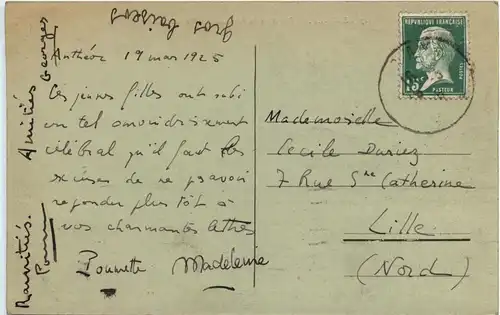 gros baisers
Anthéor 19 mars 1925
Ces jeunes filles ont subi
un tel amoindrissement
cérébral qu'il faut les
excuser de ne pas avoir
repondu plus tôt à
vos charmantes lettres
Pounette Madeleine
Amitiés Georges
REPUBLIQUE FRANÇAISE
POSTES
15c
PASTEUR
Mademoiselle
Cecile Duriez
7 Rue Ste Catherine
Lille
(Nord)